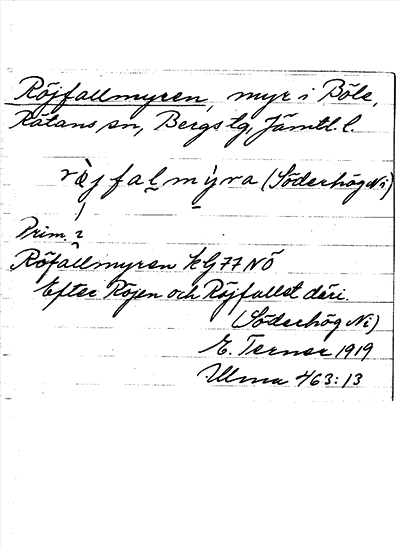 Röjfallmyren, myr i Böle,
Rätans sn, Bergs tg, Jämtl. l.
ròjfalmy̍ra (Söderhög Ni)
Prim. 2
Röfallmyren kG77NÖ
Efter Röjen och Röjfallet däri.
(Söderhög Ni)
E. Terner 1919
Ulma 463:13